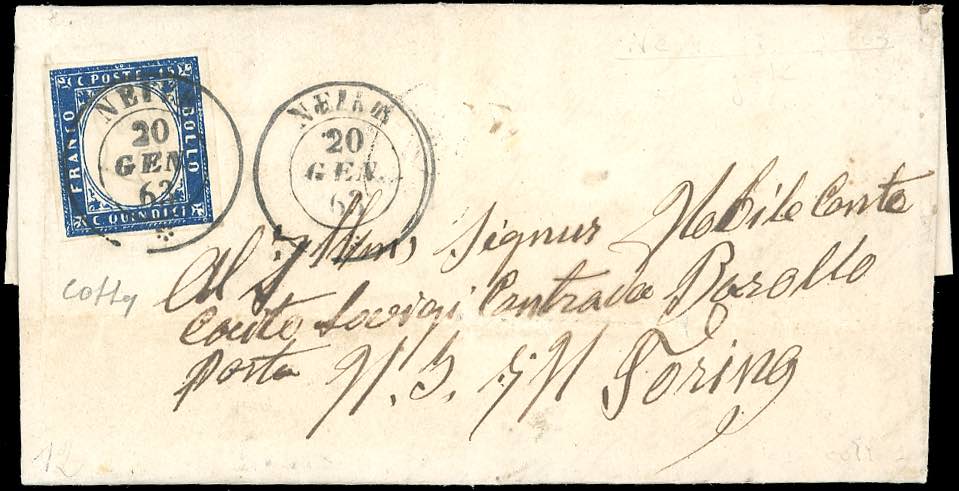 C. POSTE 15
FRANCO
BOLLO
C. QUINDICI
NEIVE
20
GEN
63
NEIVE
20
GEN
63
Al Illmo Signur Nobile Conte
Conte Luvigi Contrada Barollo
porta N. 3. Torino
Cotta
12